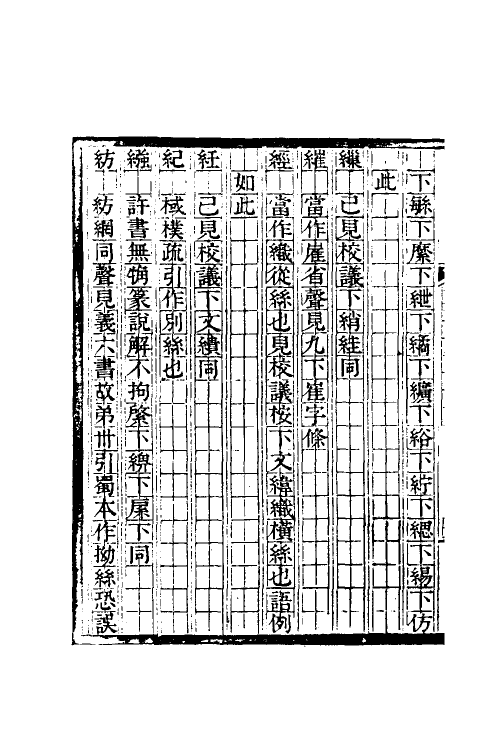 下緜下縻下紲下繘下纊下綌下紵下緦下緆下仿
此
繅 已見校議下綃絓同
維 當作崔省聲見九下崔字條
經 當作織從絲也見校議桉下文緯織橫絲也語例
如此
紝 已見校議下文繢同
紀 棫樸疏引作別絲也
繈 許書無篆說解不拘綮下繲下同
紡 紡網同聲見義六書故弟卅引蜀本作拗絲恐誤